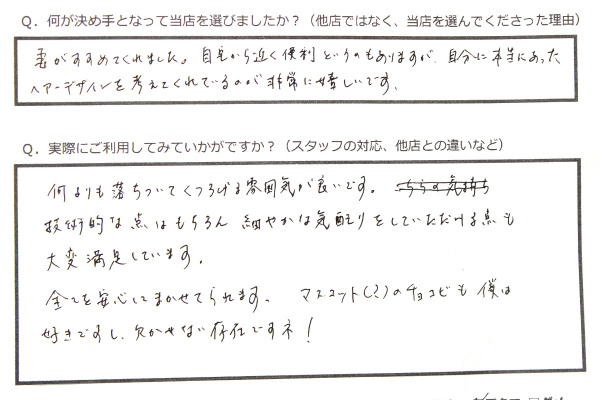 Q. 何が決め手となって当店を選びましたか？（他店ではなく、当店を選んでくださった理由）
妻がすすめてくれました。自宅から近く便利というのもありますが、自分に本当にあった
ヘアーデザインを考えてくれているのが非常に嬉しいです。
Q. 実際にご利用してみていかがですか？（スタッフの対応、他店との違いなど）
何よりも落ちついてくつろげる雰囲気が良いです。
技術的な点はもちろん 細やかな気配りをしていただける点も
大変満足しています。
全てを安心してまかせてられます。 マスコット(?)のチョコビも僕は
好きですし、欠かせない存在ですネ！